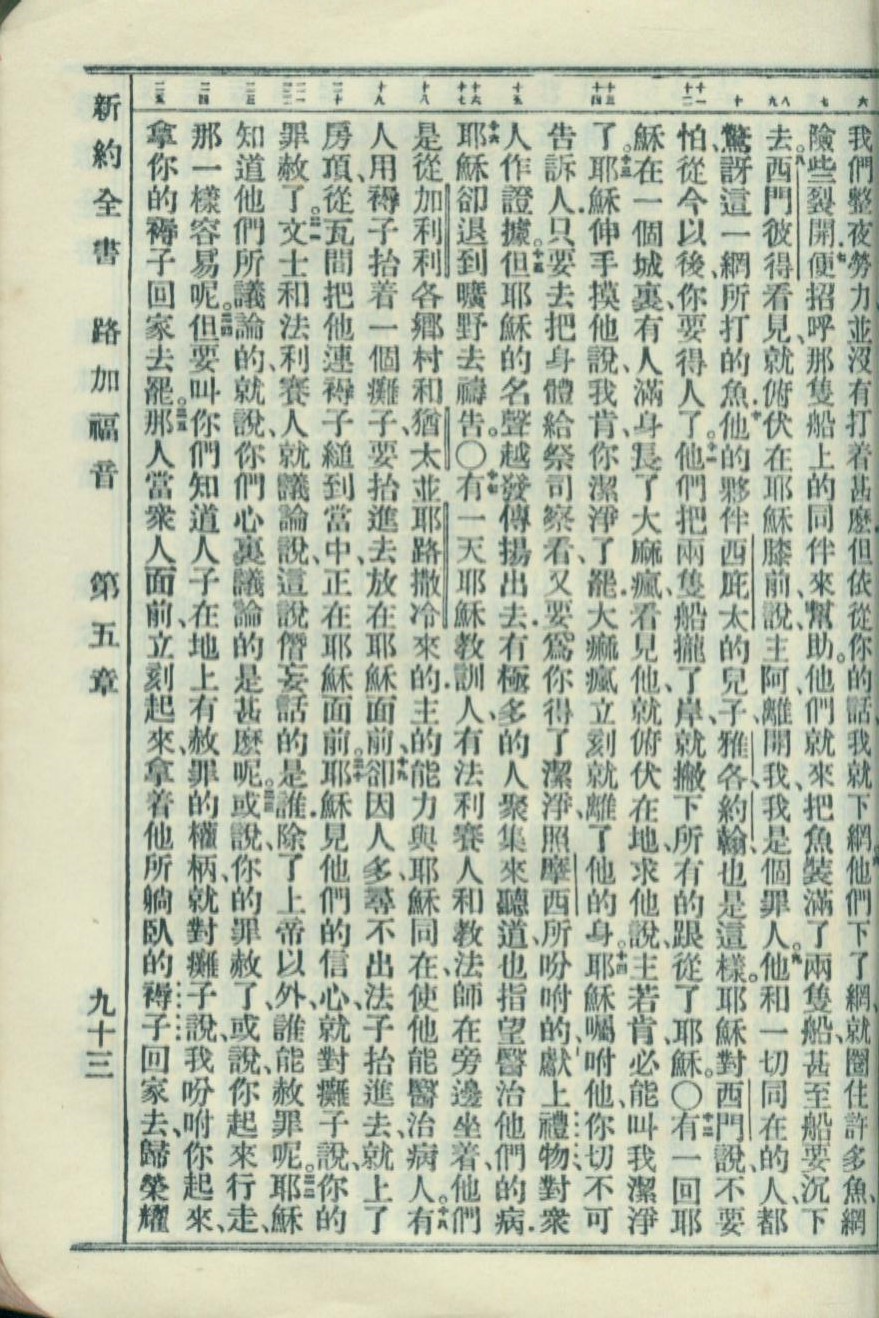 我們整夜勞力並沒有打着甚麽但依從你的話我就下網他們下了網、就圈住許多魚網
險些裂開便招呼那隻船上的同伴來幫助。他們就來把魚裝滿了兩隻船、甚至船要沉下
去。西門彼得看見、就俯伏在耶穌膝前說、主阿、離開我、我是個罪人。他和一切同在的人、都
驚訝這一網所打的魚他的夥伴西庇太的兒子、雅各、約翰、也是這樣。耶穌對西門說、不要
怕、從今以後、你要得人了。他們把兩隻船攏了岸、就撇下所有的、跟從了耶穌。○有一回耶
穌在一個城裏、有人滿身長了大麻瘋看見他、就俯伏在地、求他說、主若肯、必能叫我潔淨
了。耶穌伸手摸他說、我肯、你潔淨了罷大痲瘋立刻就離了他的身。耶穌囑咐他、你切不可
告訴人只要去把身體給祭司察看又要爲你得了潔淨、照摩西所吩咐的、獻上禮物、對衆
人作證據。但耶穌的名聲越發傳揚出去有極多的人聚集來聽道、也指望醫治他們的病
耶穌卻退到曠野去禱告。○有一天耶穌教訓人、有法利賽人和教法師在旁邊坐着、他們
是從加利利各鄉村和猶太並耶路撒冷來的主的能力與耶穌同在、使他能醫治病人。有
人用褥子抬着一個癱子、要抬進去放在耶穌面前、卻因人多、尋不出法子抬進去、就上了
房頂、從瓦間把他連褥子縋到當中、正在耶穌面前。耶穌見他們的信心、就對癱子說、你的
罪赦了。文士和法利賽人、就議論說、這說僭妄話的是誰、除了上帝以外、誰能赦罪呢。耶穌
知道他們所議論的、就說、你們心裏議論的是甚麽呢。或說、你的罪赦了、或說、你起來行走、
那一樣容易呢。但要叫你們知道人子在地上有赦罪的權柄、就對癱子說、我吩咐你起來、
拿你的褥子回家去罷。那人當衆人面前、立刻起來、拿着他所躺臥的褥子回家去、歸榮耀
新約全書 路加福音 第五章 九十三